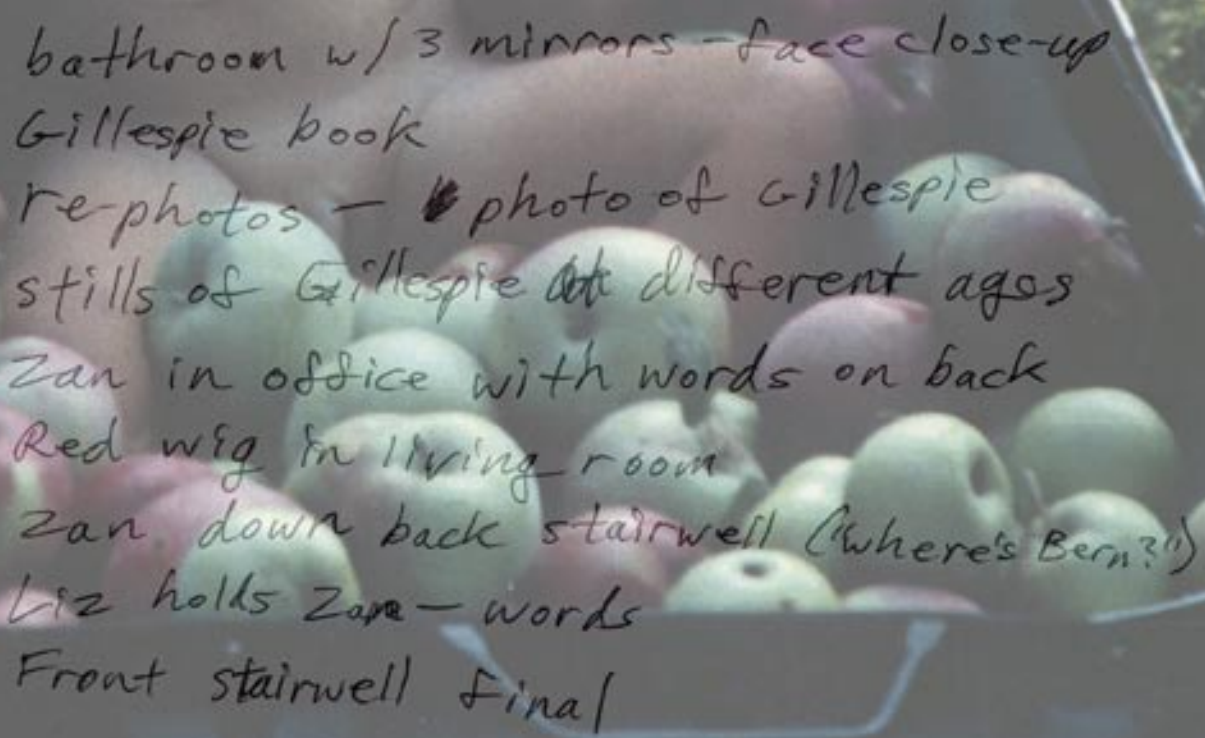 bathroom w/ 3 mirrors - face close-up
Gillespie book
re-photos - photo of Gillespie
stills of Gillespie at different ages
Zan in office with words on back
Red wig in living room
Zan down back stairwell ("Where's Bern?")
Liz holds Zan - words
Front stairwell final